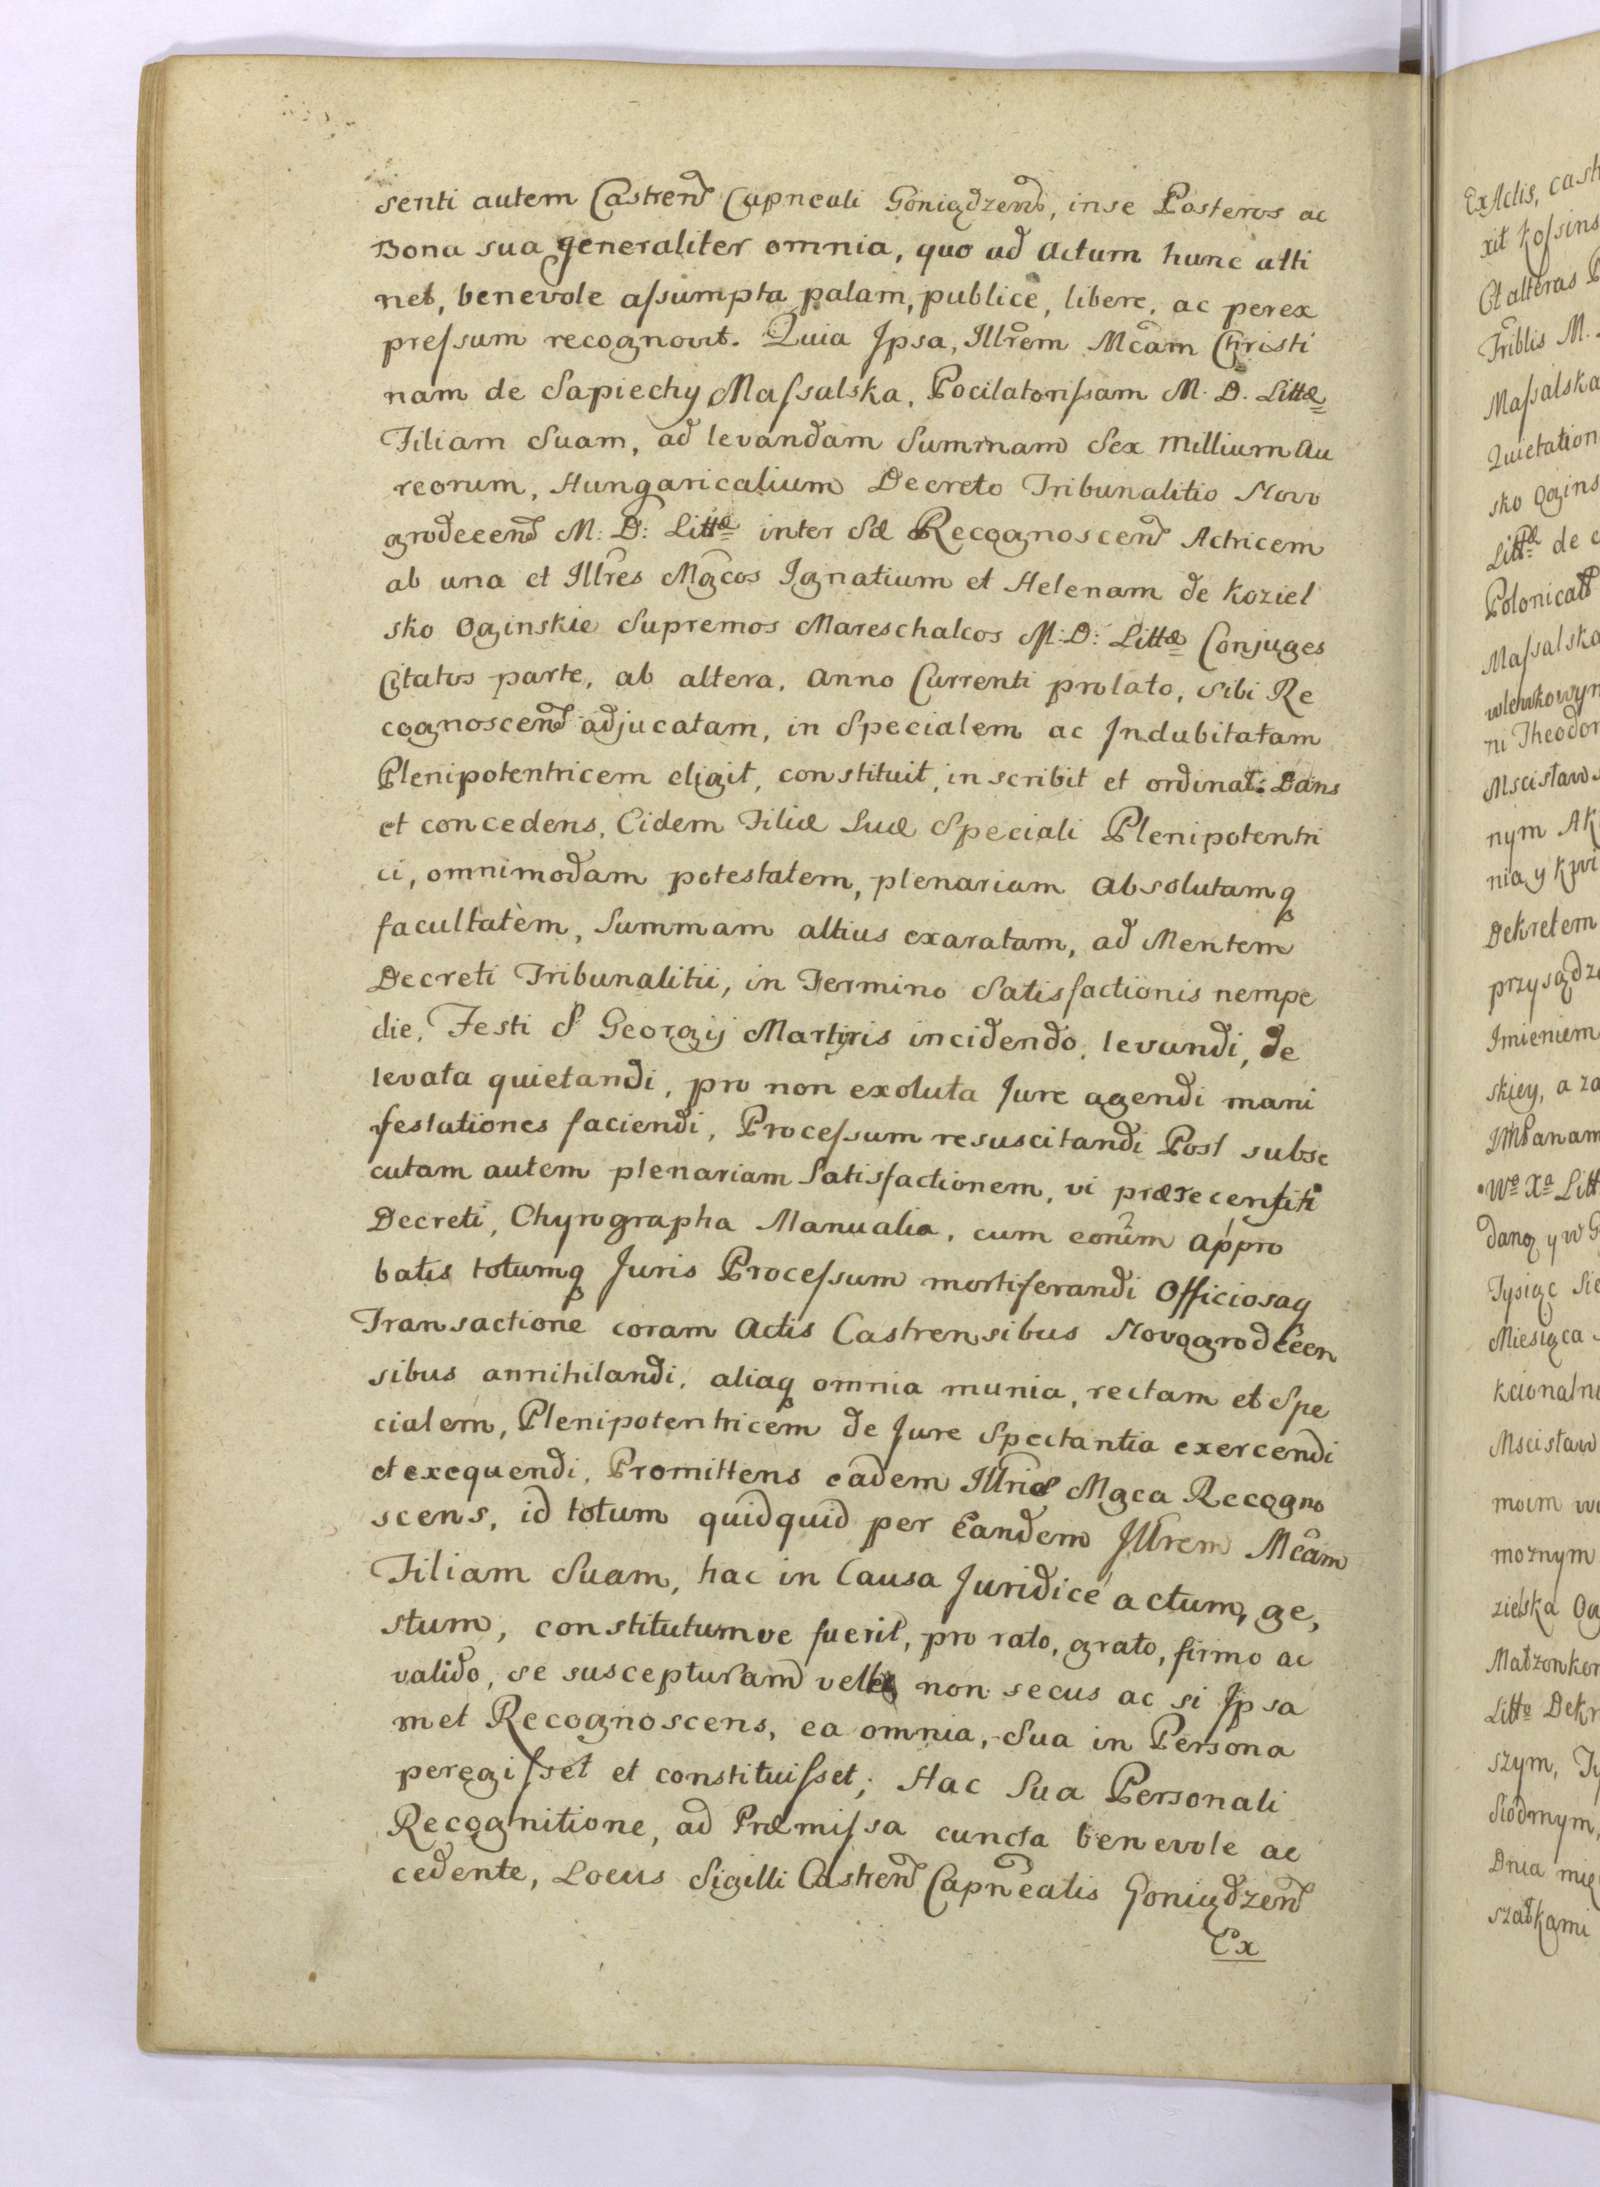 senti autem Castren Capneali Goniądzensi, in se Posteros ac
Bona sua generaliter omnia, quo ad actum hunc atti
net, benevole assumpta palam, publice, libere, ac per ex
pressum recognovit. Quia Ipsa, Illrem Mcam Christi
nam de Sapiechy Massalska, Pocilatorissam M. D. Littæ
Filiam Suam, ad levandam Summam Sex Millium Au
reorum, Hungaricalium Decreto Tribunalitio Novo
grodecen M: D: Littæ inter Se Recognoscen Actricem
ab una et Illres Mgcos Ignatium et Helenam de Koziel
sko Oginskie Supremos Mareschalcos M: D: Littæ Conjuges
Citatos parte, ab altera, Anno Currenti prolato, sibi Re
cognoscen adjucatam, in Specialem ac Indubitatam
Plenipotentricem eligit, constituit, inscribit et ordinat. Dans
et concedens, Eidem Filiæ Suæ Speciali Plenipotentri
ci, omnimodam potestatem, plenariam absolutamq
facultatem, Summam altius exaratam, ad Mentem
Decreti Tribunalitii, in Termino Satisfactionis nempe
die, Festi S Georgij Martyris incidendo, levandi, de
levata quietandi, pro non exoluta Jure agendi mani
festationes faciendi, Processum resuscitandi Post subse
cutam autem plenariam Satisfactionem, vi prærecensiti
Decreti, Chyrographa Manualia, cum eorum appro
batis totumq Juris Processum mortiferandi Officiosaq
Transactione coram Actis Castrensibus Novogrodecen
sibus annihilandi, aliaq omnia munia, rectam et Spe
cialem, Plenipotentricem de Jure Spectantia exercendi
et exequendi, Promittens eadem Illris Mgca Recogno
scens, id totum quidquid per Eandem Illrem Mcam
Filiam Suam, hac in Causa Juridice actum, ge,
stum, constitutumve fuerit, pro rato, grato, firmo ac
valido, se suscepturam velle non secus ac si Ipsa
met Recognoscens, ea omnia, Sua in Persona
peregisset et constituisset; Hac Sua Personali
Recognitione, ad Præmissa cuncta benevole ac
cedente, Locus Sigilli Castren Capnealis Goniądzen
Ex
Ex Actis, cast
xit Kossins
Et alteras P
Triblis M.
Massalska
Quietation
sko Ogins
Littæ de
Polonicali
Massalska
wlewkowym
ni Theodor
Mscisław
nym Ak
nia y kwi
Dekretem
przysądz
Imieniem
skiey, a za
JMPanam
Wo Xa Litt
daną y w G
Tysiąc Sie
Miesiąca
kcionaln
Mscisław
moim wi
możnym
zielska Og
Małżonkom
Litto Dekr
szym, Ty
Siodmym,
Dnia mię
szałkami